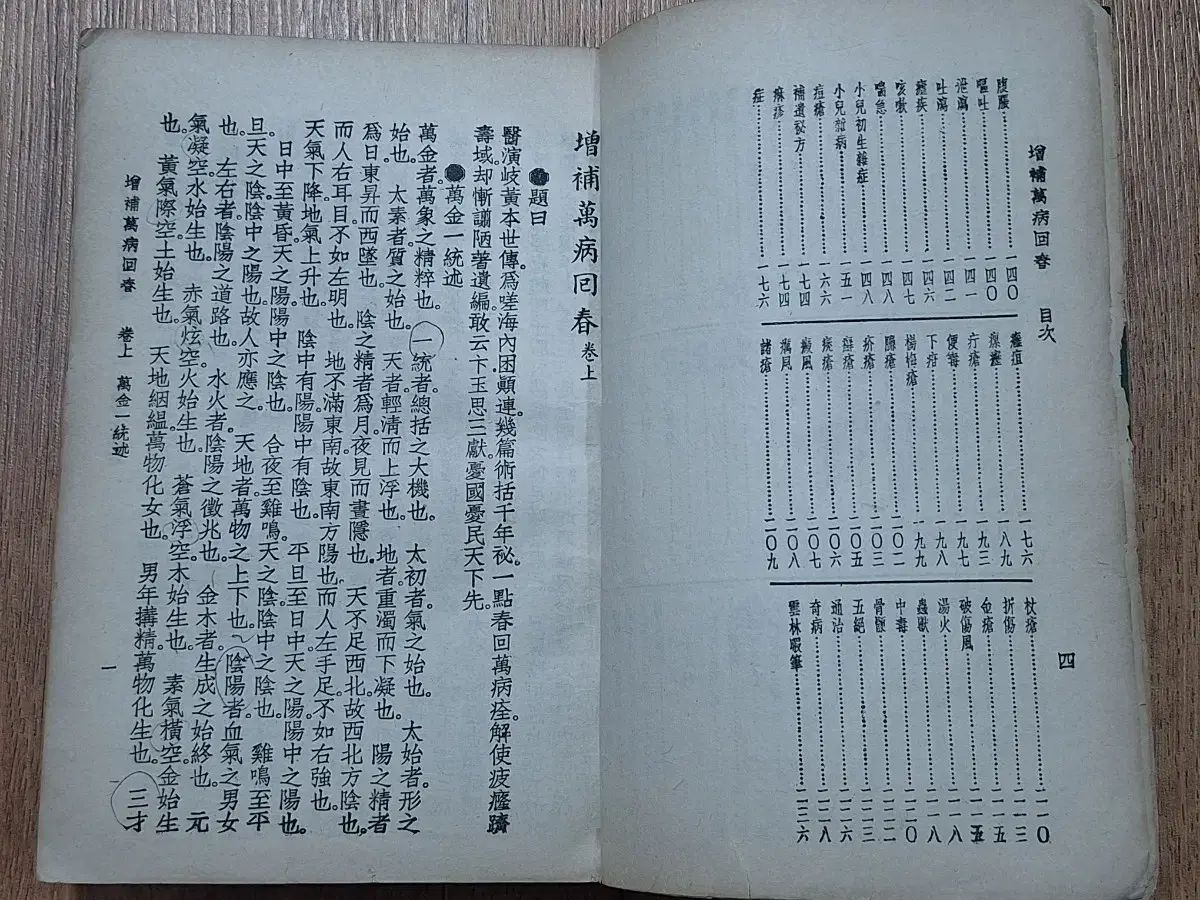 增補萬病回春 目次 四
腹脹……一四〇
嘔吐……一四〇
泄瀉……一四一
吐瀉……一四二
瘧疾……一四六
咳嗽……一四七
喘急……一四八
小兒初生雜症……一四八
小兒雜病……一五一
痘瘡……一六六
補遺秘方……一七四
麻疹……一七四
症……一七六
癰疽……一七六
瘰癧……一八九
疔瘡……一九三
便毒……一九七
下疳……一九八
楊梅瘡……一九九
臁瘡……二〇二
疥瘡……二〇三
癬瘡……二〇五
瘡……二〇六
癜風……二〇七
癘風……二〇八
諸瘡……二〇九
杖瘡……二一〇
折傷……二一三
金瘡……二一五
破傷風……二一五
湯火……二一八
蟲獸……二一八
中毒……二二〇
骨鯁……二二二
五絕……二二二
通治……二二六
奇病……二二八
雲林暇筆……二三六
增補萬病回春 卷上
●題曰
醫演岐黃本世傳。爲嗟海內困顚連。幾篇術括千年祕。一點春回萬病痊。解使疲癃躋
壽域。却慚謭陋著遺編。敢云卞玉思三獻。憂國憂民天下先。
●萬金一統述
萬金者萬象之精粹也。一統者總括之大機也。太初者氣之始也。太始者形之
始也。太素者質之始也。天者輕清而上浮也。地者重濁而下凝也。陽之精者
爲日東昇而西墜也。陰之精者爲月夜見而晝隱也。天不足西北故西北方陰也。
而人右耳目不如左明也。地不滿東南故東南方陽也而人左手足不如右強也。
天氣下降地氣上升也。陰中有陽陽中有陰也。平旦至日中天之陽陽中之陽也。
日中至黃昏天之陽陽中之陰也。合夜至雞鳴天之陰陰中之陰也。雞鳴至平
旦天之陰陰中之陽也故人亦應之。天地者萬物之上下也。陰陽者血氣之男女
也。左右者陰陽之道路也。水火者陰陽之徵兆也。金木者生成之始終也。元
氣凝空水始生也。赤氣炫空火始生也。蒼氣浮空木始生也。素氣橫空金始生
也。黃氣際空土始生也。天地絪縕萬物化女也。男年搆精萬物化生也。三才
增補萬病回春 卷上 萬金一統述 一